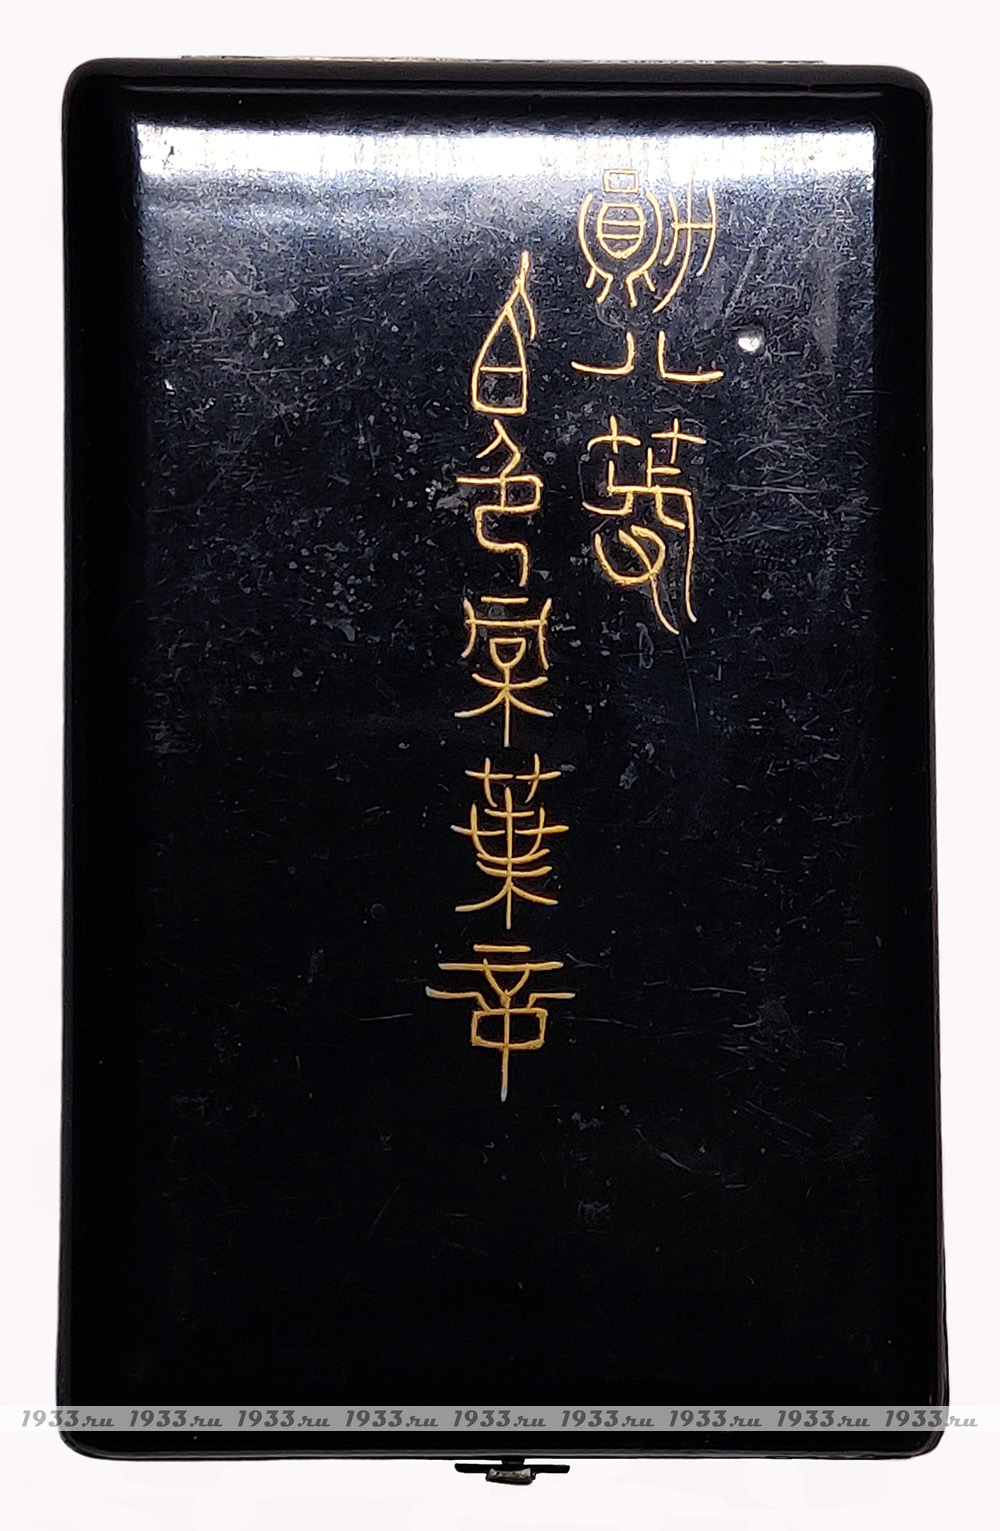 勛八等
白色桐葉章
1933.ru 1933.ru 1933.ru 1933.ru 1933.ru 1933.ru 1933.ru 1933.ru 1933.ru